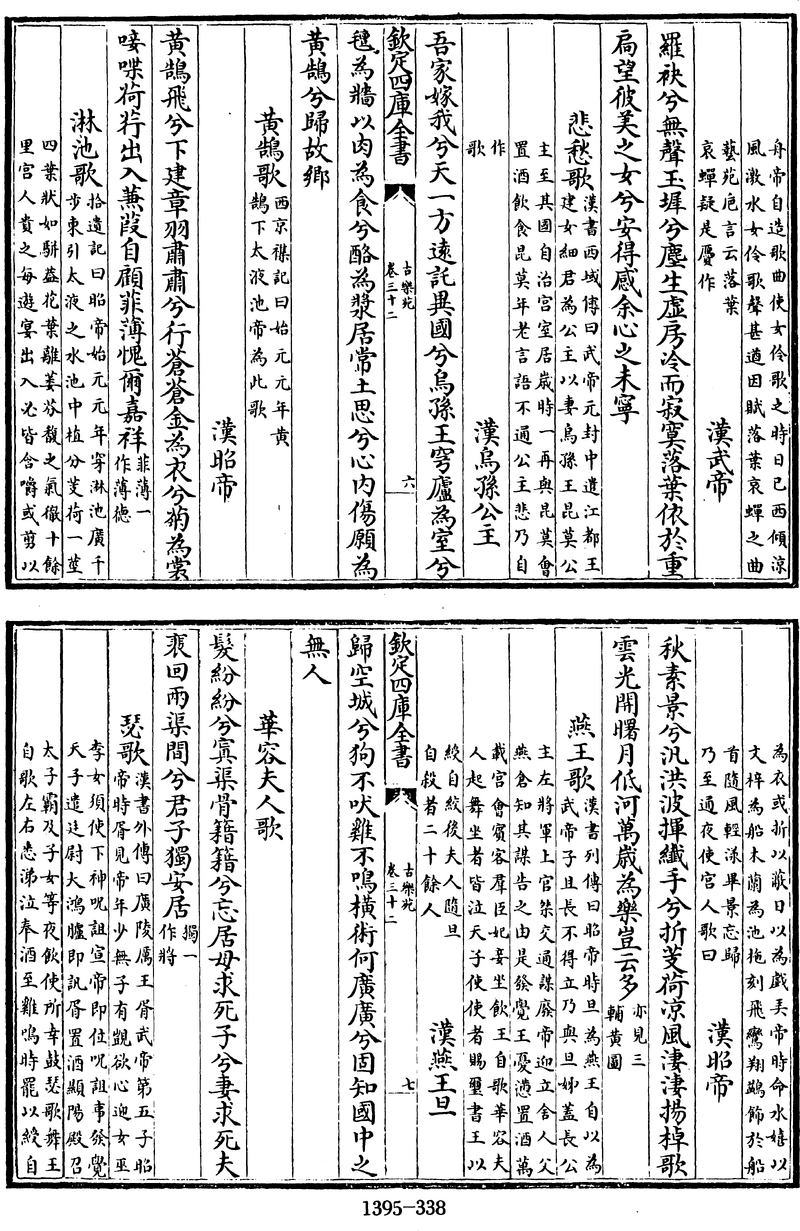 舟帝自造歌曲使女伶歌之時日已西傾涼
風激水女伶歌聲甚遒因賦落葉哀蟬之曲
藝苑巵言云落葉
哀蟬疑是贗作
漢武帝
羅袂兮無聲玉墀兮塵生虛房冷而寂寞落葉依於重
扃望彼美之女兮安得感余心之未寧
悲愁歌
漢書西域傳曰武帝元封中遣江都王
建女細君為公主以妻烏孫王昆莫公
主至其國自治宫室居嵗時一再與昆莫會
置酒飲食昆莫年老言語不通公主悲乃自
作
歌
漢烏孫公主
吾家嫁我兮天一方逺託異國兮烏孫王穹廬為室兮
欽定四庫全書
古樂苑
卷三十二
六
氊為牆以肉為食兮酪為漿居常土思兮心内傷願為
黄鵠兮歸故鄉
黄鵠歌
西京襍記曰始元元年黄
鵠下太液池帝為此歌
漢昭帝
黄鵠飛兮下建章羽肅肅兮行蒼蒼金為衣兮菊為裳
唼喋荷荇出入蒹葭自顧菲薄愧爾嘉祥
菲薄一
作薄德
淋池歌
拾遺記曰昭帝始元元年穿淋池廣千
步東引太液之水池中植分芰荷一莖
四葉狀如駢葢花葉離萎芬馥之氣徹十餘
里宫人貴之每遊宴出入必皆含嚼或剪以
為衣或折以蔽日以為戲美帝時命水嬉以
文梓為船木蘭為池拖刻飛鸞翔鷁飾於船
首隨風輕漾畢景忘歸
乃至通夜使宫人歌曰
漢昭帝
秋素景兮汎洪波揮纖手兮折芰荷凉風淒淒揚棹歌
雲光開曙月低河萬嵗為樂豈云多
亦見三
輔黄圖
燕王歌
漢書列傳曰昭帝時旦為燕王自以為
武帝子且長不得立乃與旦姊蓋長公
主左將軍上官桀交通謀廢帝迎立舍人父
燕倉知其謀告之由是發覺王憂懣置酒萬
載宫會賓客羣臣妃妾坐飲王自歌華容夫
人起舞坐者皆泣天子使使者賜璽書王以
綬自絞後夫人隨旦
自殺者二十餘人
漢燕王旦
欽定四庫全書
古樂苑
卷三十二
七
歸空城兮狗不吠雞不鳴橫術何廣廣兮固知國中之
無人
華容夫人歌
髮紛紛兮寘渠骨籍籍兮忘居母求死子兮妻求死夫
裵回兩渠間兮君子獨安居
獨一
作將
瑟歌
漢書外傳曰廣陵厲王胥武帝第五子昭
帝時胥見帝年少無子有覬欲心迎女巫
李女須使下神呪詛宣帝即位呪詛事發覺
天子遣廷尉大鴻臚即訊胥置酒顯陽殿召
太子霸及子女等夜飲使所幸鼓瑟歌舞王
自歌左右悉涕泣奉酒至雞鳴時罷以綬自
1395-338